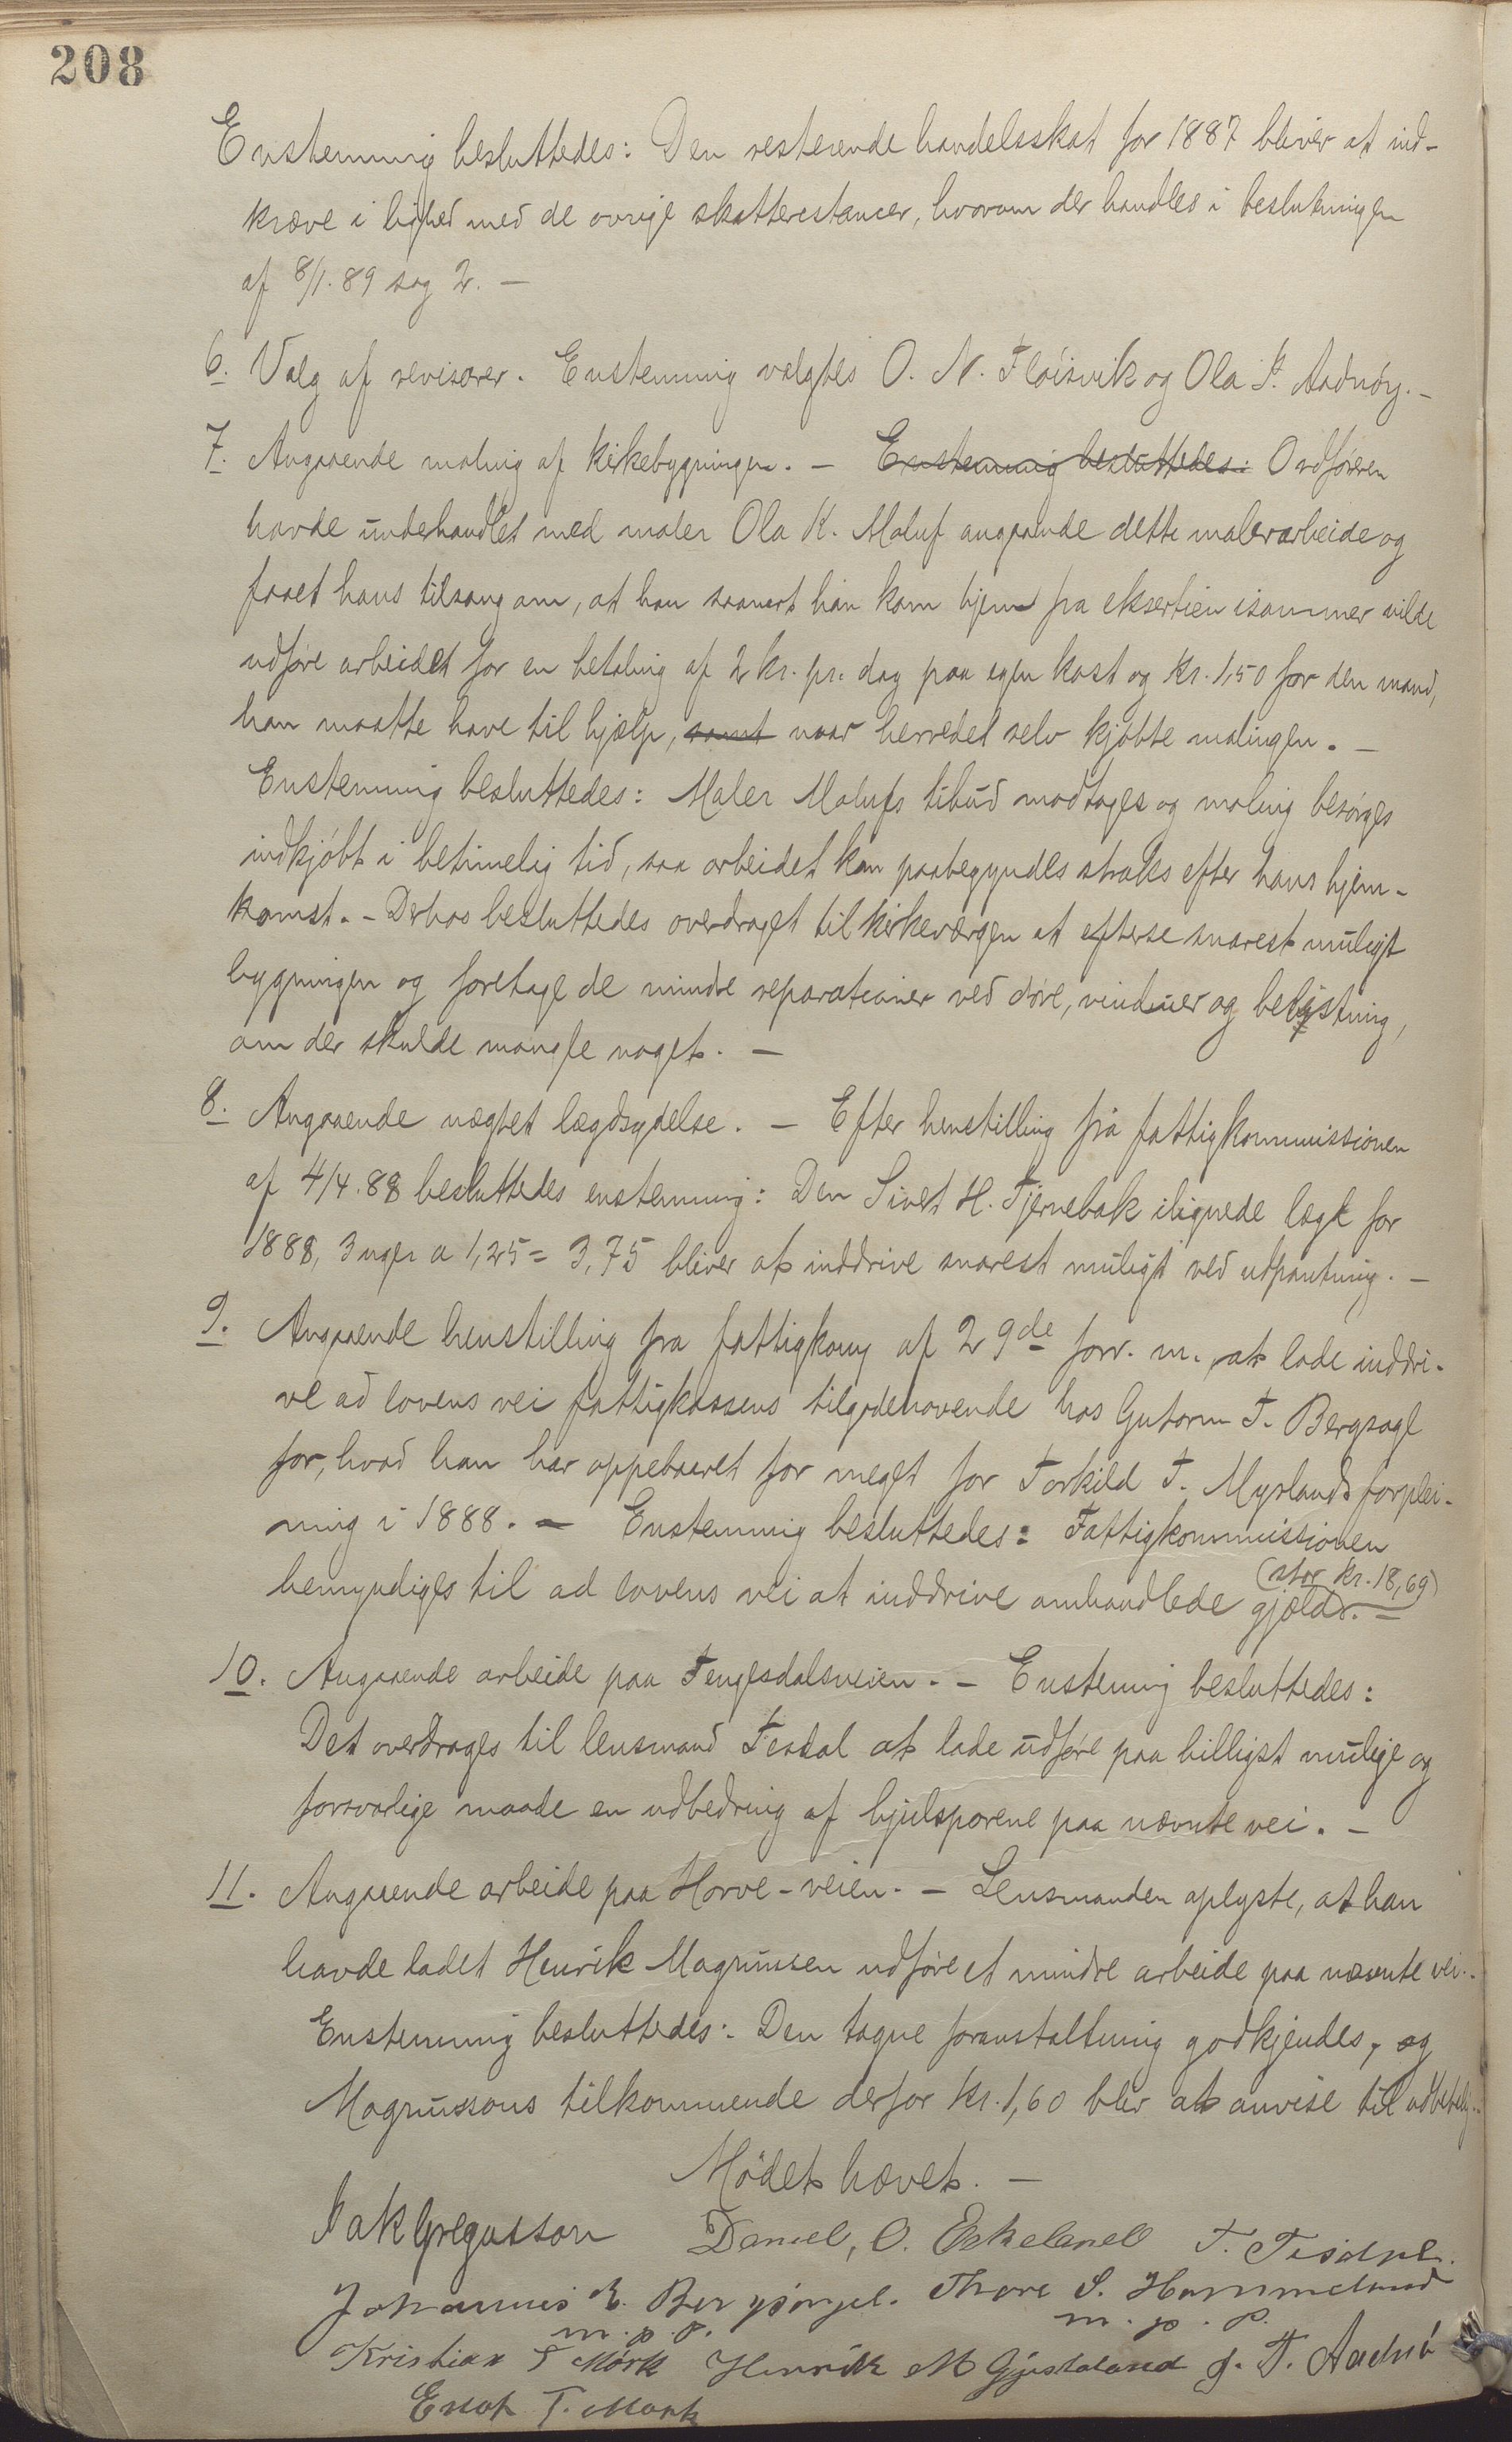 208
Enstemmig besluttedes: Den resterende handelsskat for 1887 bliver at ind-
kræve i lighed med de øvrige skatterestancer, hvorom der handles i beslutningen
af 8/1. 89 sag 2. —
6. Valg af revisorer. Enstemmig valgtes O. N. Fløisvik og Ola P. Aadnøy. —
7. Angaaende maling af kirkebygningen. — Enstemmig besluttedes: Ordføreren
havde underhandlet med maler Ola K. Maluf angaaende dette malerarbeide og
faaet hans tilsang om, at han saasnart han kom hjem fra eksersien isommer vilde
udføre arbeidet for en betaling af 2 kr. pr. dag paa egen kost og kr. 1,50 for den mand,
han maatte have til hjælp, samt naar herredet selv kjøbte malingen. —
Enstemmig besluttedes: Maler Malufs tibud modtages og maling besørges
indkjøbt i betimelig tid, saa arbeidet kan paabegyndes straks efter hans hjem-
komst. — Derhos besluttedes overdraget til kirkeværgen at efterse snarest muligt
bygningen og foretage de mindre reparationer ved døre, vinduer og belistning,
om der skulde mangle noget. —
8. Angaaende nægtet lægdsydelse. — Efter henstilling fra fattigkommissionen
af 4/4. 88 besluttedes enstemmig: Den Sivert H. Tjernebak ilignede lægd for
1888, 3 uger a 1,25 = 3,75 bliver at inddrive snarest muligt ved udpantning. —
9. Angaaende henstilling fra fattigkomm af 29de forr. m. at lade inddri-
ve ad lovens vei fattigkassens tilgodehavende hos Gutorm T. Bergsagl
for, hvad han har oppebaaret for meget for Torkild T. Myrlands forplei-
ning i 1888. — Enstemmig besluttedes: Fattigkommissionen
bemyndiges til ad lovens vei at inddrive omhandlede gjæld. — (stor kr. 18,69)
10. Angaaende arbeide paa Tengesdalsveien. — Enstemmig besluttedes:
Det overdrages til lensmand Tesdal at lade udføre paa billigst mulige og
forsvarlige maade en udbedring af hjulsporene paa nævnte vei. —
11. Angaaende arbeide paa Horve-veien. — Lensmanden oplyste, at han
havde ladet Henrik Magnussen udføre et mindre arbeide paa nævnte vei. -
Enstemmig besluttedes: Den tagne foranstaltning godkjendes, og
Magnussons tilkommende derfor kr. 1,60 blir at anvise til udbetalg. -
Mødet hævet. —
Jak Gregusson Daniel, O. Eskeland T. Tisdal.
Johannis E. Bergsagel. Thore S. Hammeland
m. p. p. m. p. p.
Kristian T Mørk Henrik M Gjestaland J. T. Aadnø
Enok T. Mørk